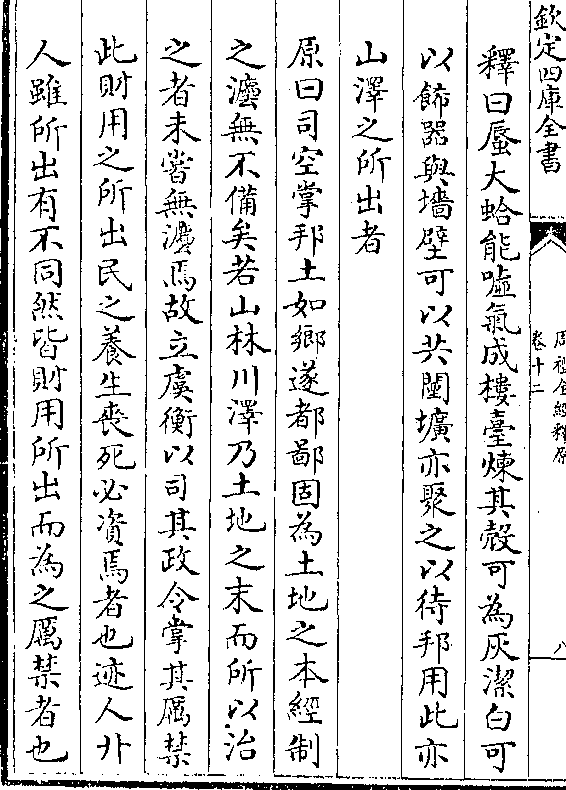 欽定四庫全書
周禮全經釋原
卷十二
八
釋曰蜃大蛤能噓氣成樓臺煉其殼可為灰潔白可
以飾器與墻壁可以共闉壙亦聚之以待邦用此亦
山澤之所出者
原曰司空掌邦土如鄉遂都鄙固為土地之本經制
之灋無不備矣若山林川澤乃土地之末而所以治
之者未甞無灋焉故立虞衡以司其政令掌其厲禁
此財用之所出民之養生喪死必資焉者也迹人廾
人雖所出有不同然皆財用所出而為之厲禁者也